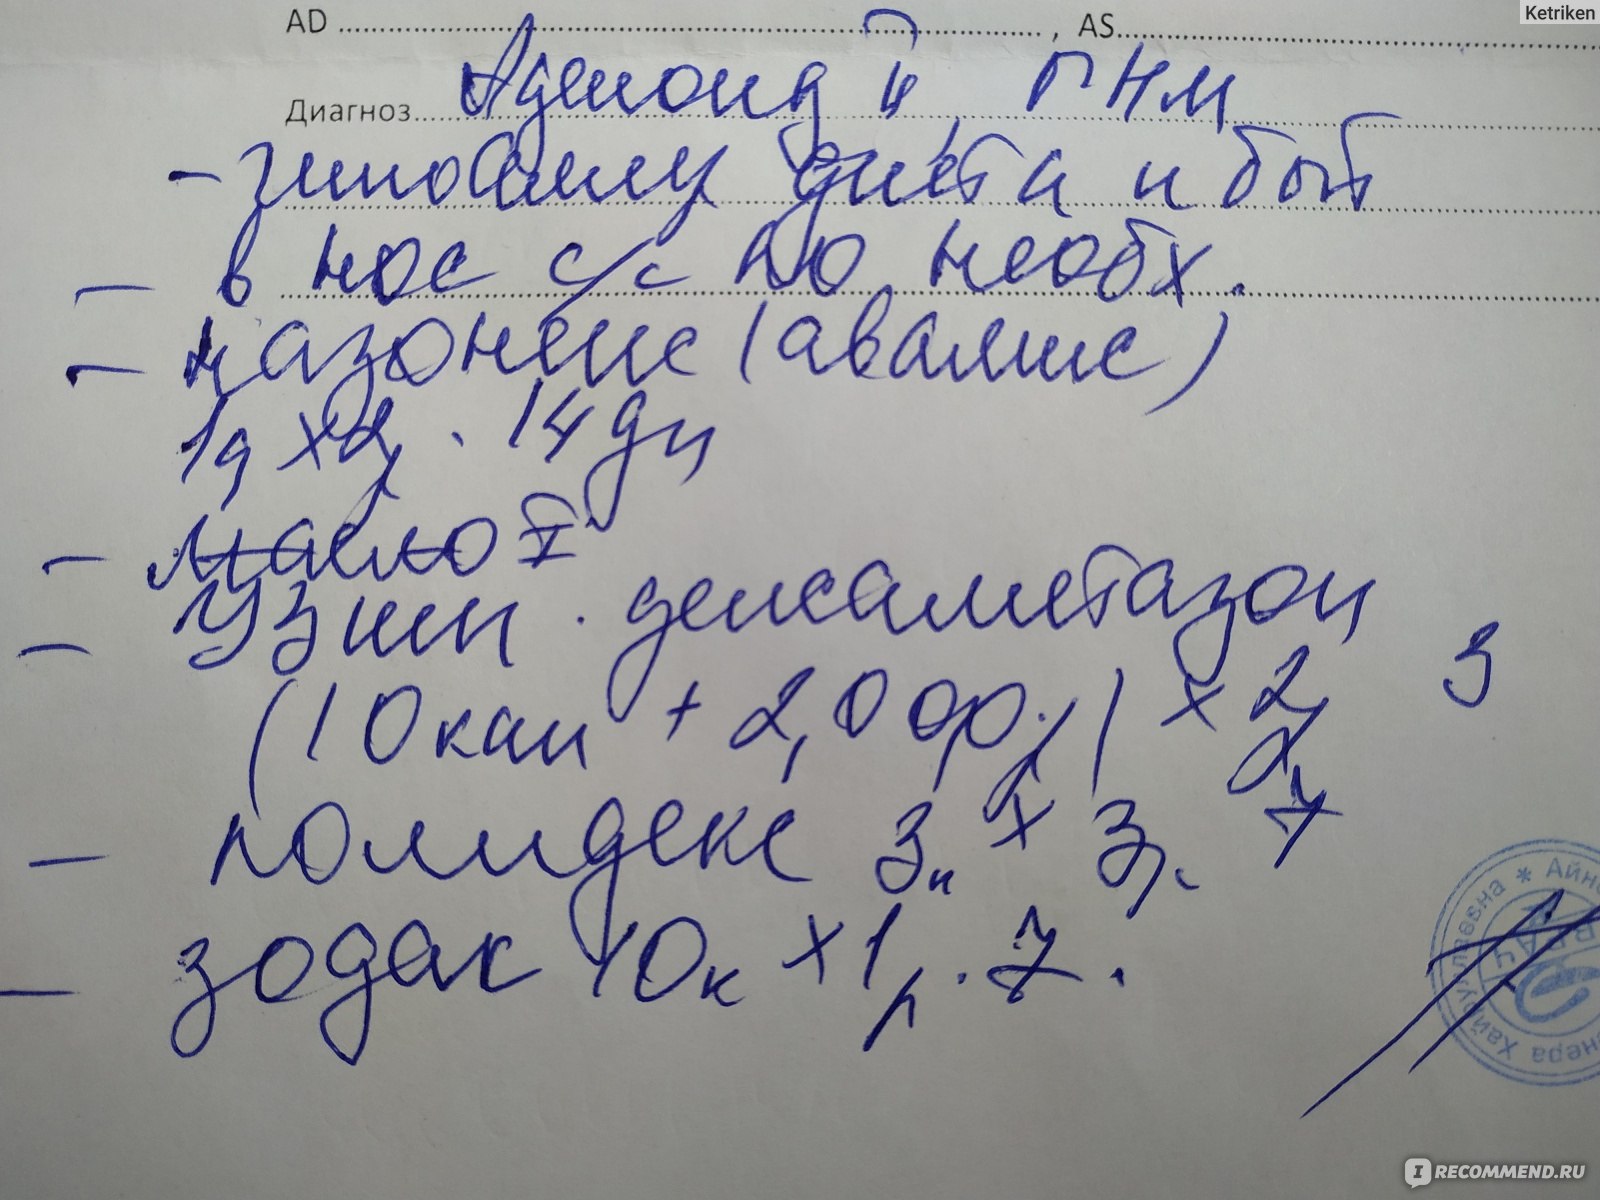 Ketriken
AD ..., AS...
Диагноз... Аденоид II, ГНМ
- гипоаллг диета и быт
- в нос с/с по необх.
- назонекс (авамис)
1д x 2р. 14 дн
- масло
- УЗ инг. дексаметазон
(10 кап + 2,0 фр.) x 2р 3
- полидекс 3к x 3р. 7
- зодак 10к x 1р. 7.
Айн
ВРАЧ
IRECOMMEND.RU